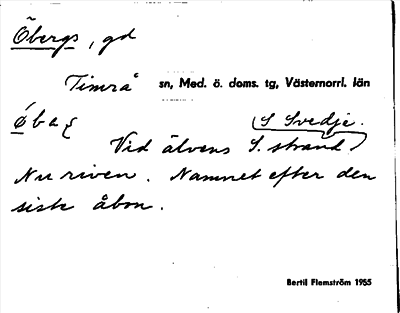 Öbergs, gd
Timrå sn, Med. ö. doms. tg, Västernorrl. län
S Svedje.
Vid älvens S. strand
Nu riven. Namnet efter den
siste åbon.
Bertil Flemström 1955